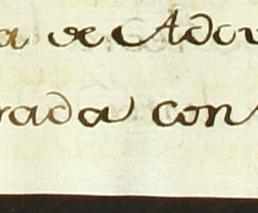 a de Ado
rada con